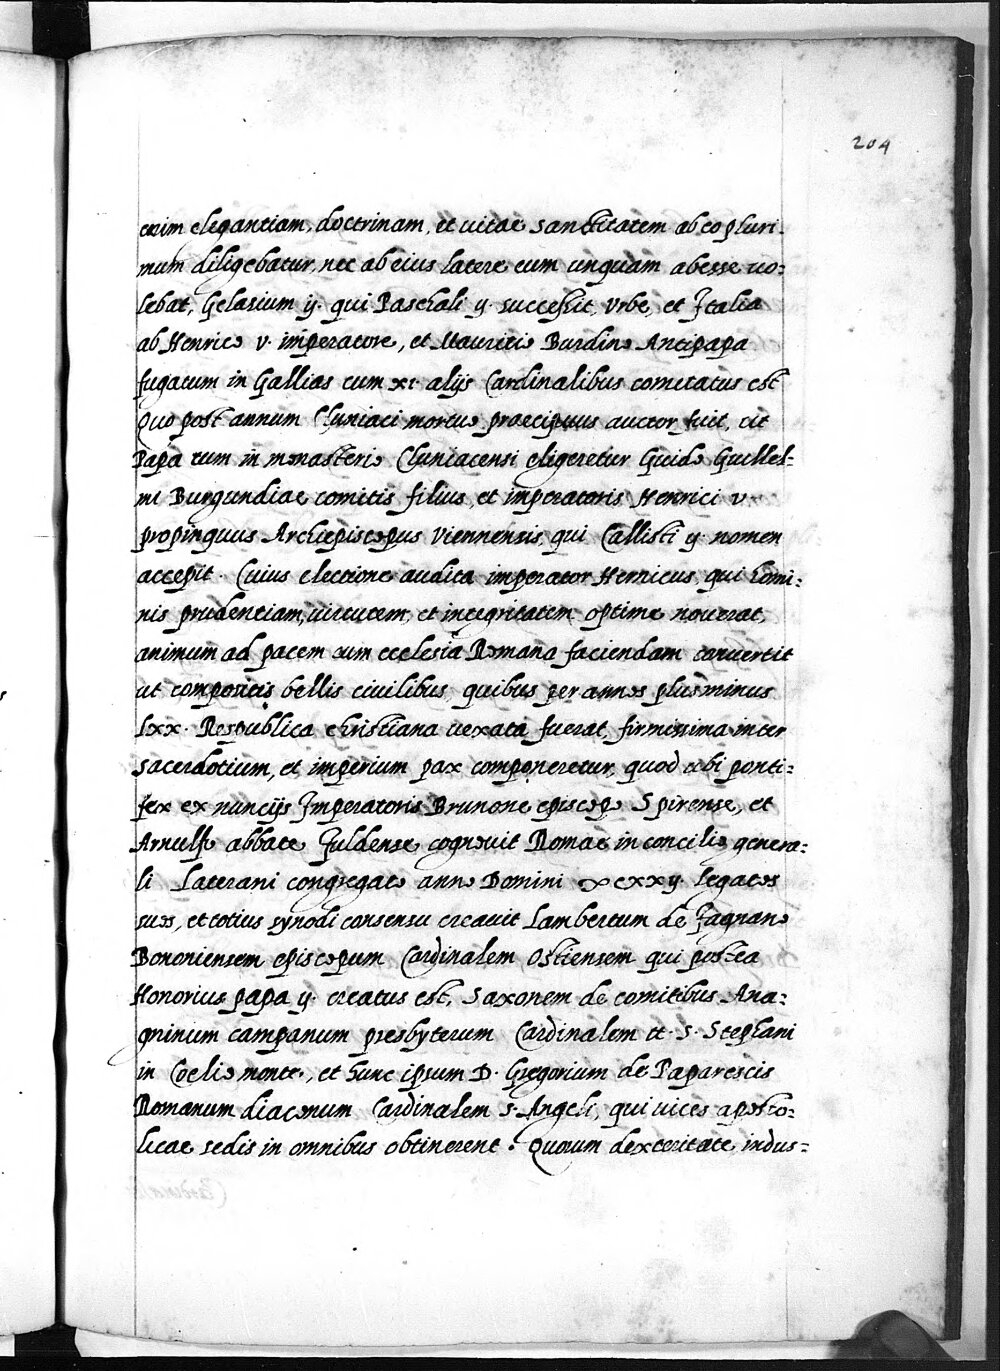 204
enim elegantiam, doctrinam, et vitae sanctitatem ab eo pluri-
mum diligebatur, nec ab eius latere eum unquam abesse uo:
lebat, Gelasium ij. qui Paschali ij. successit, Vrbe, et Italia
ab Henrico V. imperatore, et Mauritio Burdino Antipapa
fugatum in Gallias cum xi. alijs Cardinalibus comitatus est
Quo post annum Cluniaci mortuo praecipuus auctor fuit, ut
Papa tum in monasterio Cluniacensi eligeretur Guido Guillel-
mi Burgundiae comitis filius, et imperatoris Henrici V.
propinquus Archiepiscopus Viennensis, qui Callisti ij. nomen
accepit. Cuius electione audita imperator Henricus, qui homi:
nis prudentiam, uirtutem, et integritatem optime nouerat,
animum ad pacem cum ecclesia Romana faciendam conuertit
ut compositis bellis ciuilibus, quibus per annos plus minus
lxx. Respublica christiana uexata fuerat, firmissima inter
sacerdotium, et imperium pax componeretur, quod ubi ponti:
fex ex nuncijs Imperatoris Brunone episcopo Spirense, et
Arnulfo abbate Fuldense cognouit Romae in concilio genera:
li Laterani congregato anno Domini ∞cxxij. legatos
suos, et totius synodi consensu creauit Lambertum de Fagnano
Bononiensem episcopum Cardinalem Ostiensem qui postea
Honorius papa ij. creatus est, Saxonem de comitibus Ana:
gninum campanum presbyterum Cardinalem tt. S. Stephani
in Coelio monte, et hunc ipsum D. Gregorium de Paparescis
Romanum diaconum Cardinalem S. Angeli, qui uices aposto:
licae sedis in omnibus obtinerent. Quorum dexteritate, indus: